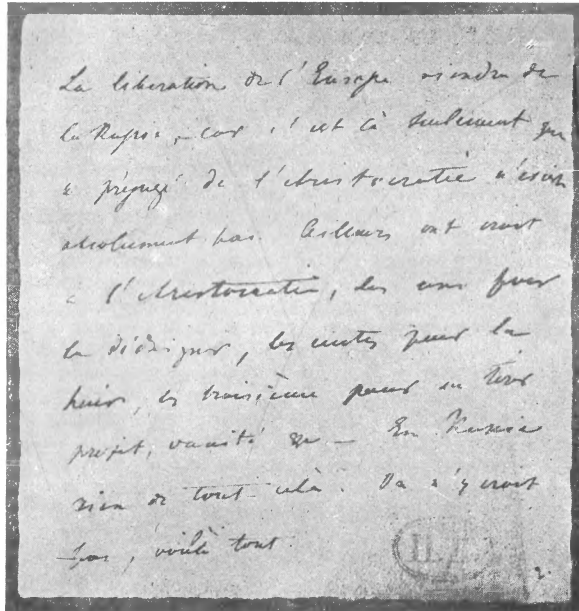 La liberation de l'Europe viendra de
la Russie, car c'est là seulement que
le préjugé de l'Aristocratie n'existe
absolument pas. Ailleurs ont croit
à l'Aristocratie, les uns pour
la dédaigner, les autres pour la
haïr, les troisième pour en tirer
profit, vanité &c — En Russie
rien de tout cela. On n'y croit
pas, voilà tout
2.